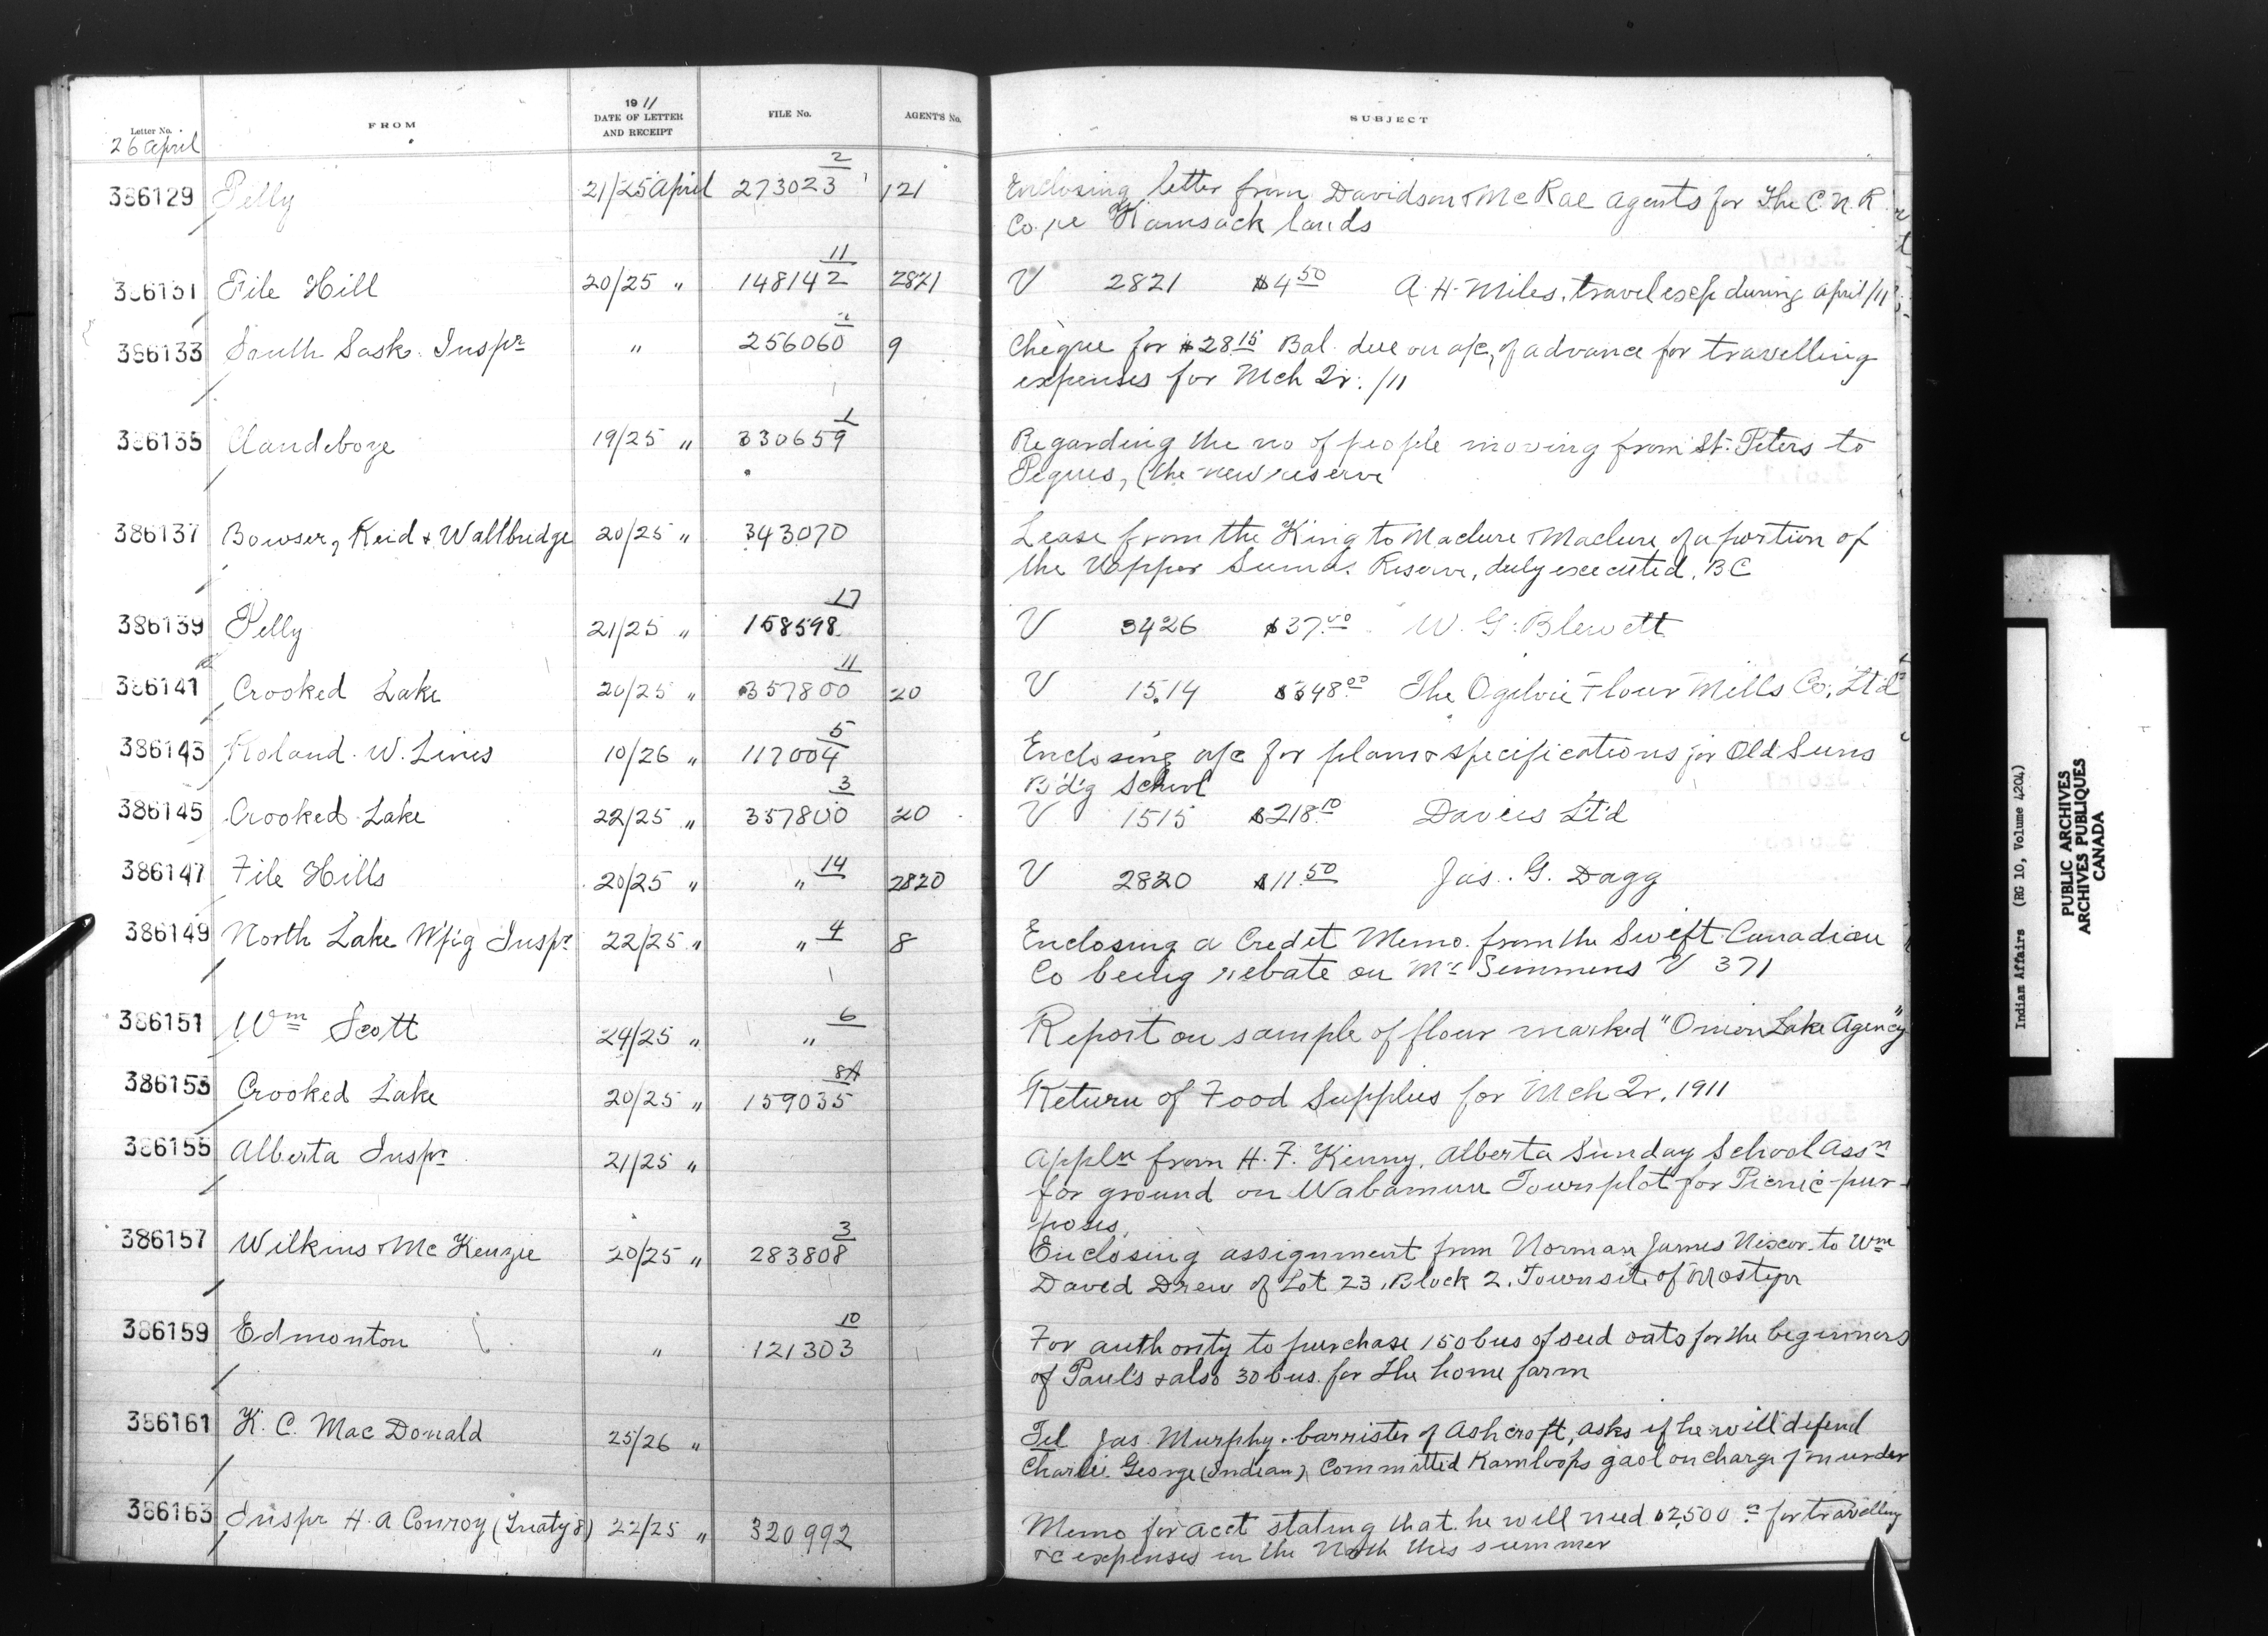 Letter No. FROM 19 11 DATE OF LETTER AND RECEIPT FILE No. AGENT'S No. SUBJECT
26 April
386129 Pelly 21/25 April 273023 2 121 Enclosing letter from Davidson & McRae agents for The C.N.R
Co. re Kamsack lands
386131 File Hill 20/25 " 148142 11 2821 V 2821 $4.50 A. H. Miles, travel exp during April /11
386133 South Sask. Inspr " 256060 2 9 Cheque for $28.15 Bal. due on a/c of advance for travelling
expenses for Mch Qr. /11
386135 Clandeboye 19/25 " 330659 1 Regarding the no of people moving from St. Peters to
Peguis, (the new reserve
386137 Bowser, Reid & Wallbridge 20/25 " 343070 Lease from the King to Maclure & Maclure of a portion of
the Upper Sumas Reserve, duly executed, BC
386139 Pelly 21/25 " 158598 17 V 3426 $37.40 W. G. Blewett
386141 Crooked Lake 20/25 " 357800 11 20 V 1514 $348.00 The Ogilvie Flour Mills Co. Lt'd
386143 Roland W. Lines 10/26 " 117004 5 Enclosing a/c for plans & specifications for Old Suns
B'd'g School
386145 Crooked Lake 22/25 " 357800 3 20 V 1515 $218.10 Davies Lt'd
386147 File Hills 20/25 " " 14 2820 V 2820 $11.50 Jas. G. Dagg
386149 North Lake W'p'g Inspr 22/25 " " 4 8 Enclosing a Credit Memo. from the Swift Canadian
Co being rebate on Mr Semmens V 371
386151 Wm Scott 24/25 " " 6 Report on sample of flour marked "Onion Lake Agency"
386153 Crooked Lake 20/25 " 159035 8A Return of Food Supplies for Mch Qr. 1911
386155 Alberta Inspr 21/25 " Appln from H. F. Kenny, Alberta Sunday School Assn
for ground on Wabamun Townplot for Picnic pur-
poses.
386157 Wilkins & McKenzie 20/25 " 283808 3 Enclosing assignment from Norman James Nixon to Wm
David Drew of Lot 23, Block 2. Townsite of Mostyn
386159 Edmonton " 121303 10 For authority to purchase 150 bus of seed oats for the beginners
of Paul's & also 30 bus. for the home farm
386161 K. C. MacDonald 25/26 " Tel Jas. Murphy. barrister of Ashcroft, asks if he will defend
Charlie George (Indian) Committed Kamloops gaol on charge of murder
386163 Inspr H. A Conroy (Treaty 8) 22/25 " 320992 Memo for acct stating that he will need $2,500.00 for travelling
&c expenses in the North this summer
Indian Affairs (RG 10, Volume 4204)
PUBLIC ARCHIVES
ARCHIVES PUBLIQUES
CANADA